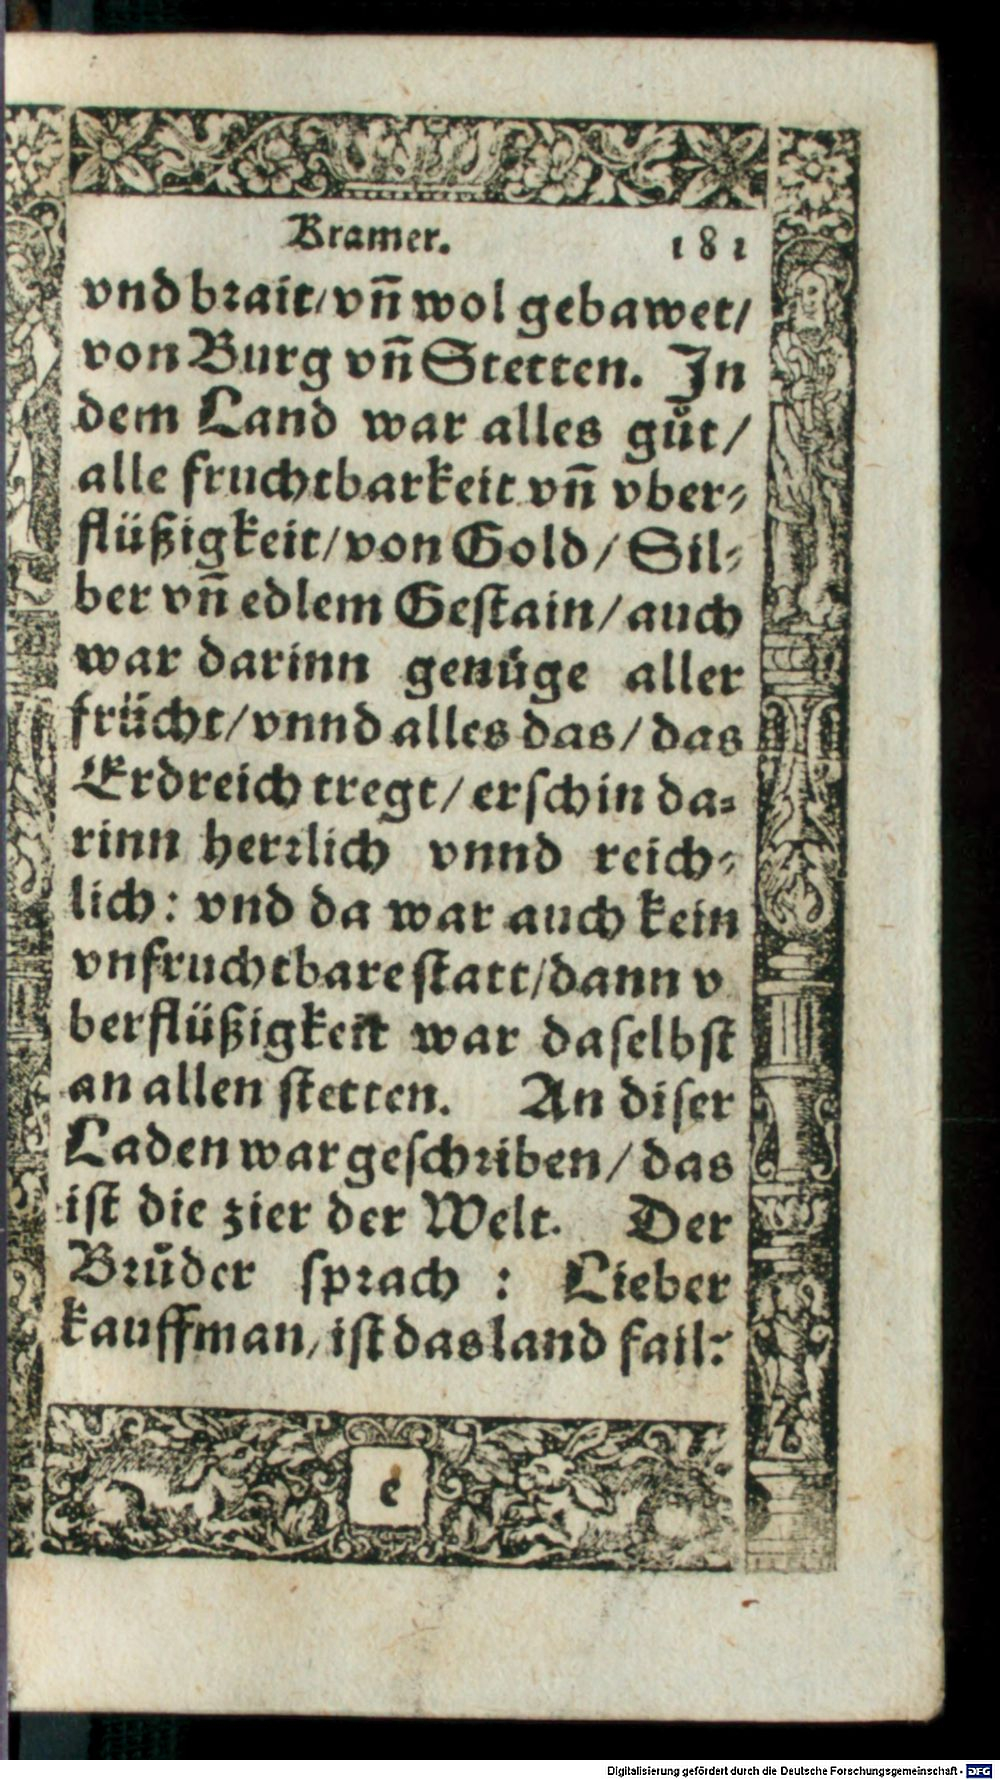 Kramer. 181
vnd brait/vñ wol gebawet/
von Burg vñ Stetten. In
dem Land war alles gůt/
alle fruchtbarkeit vñ vber⸗
flüßigkeit/von Gold/Sil⸗
ber vñ edlem Gestain/auch
war darinn genůge aller
frücht/vnnd alles das/das
Erdreich tregt/erschin da⸗
rinn herꝛlich vnnd reich⸗
lich: vnd da war auch kein
vnfruchtbare statt/dann v
berflüßigkeit war daselbst
an allen stetten. An diser
Laden war geschꝛiben/das
ist die zier der Welt. Der
Bꝛůder spꝛach : Lieber
kauffman/ist das land fail?
e
Digitalisierung gefördert durch die Deutsche Forschungsgemeinschaft - DFG